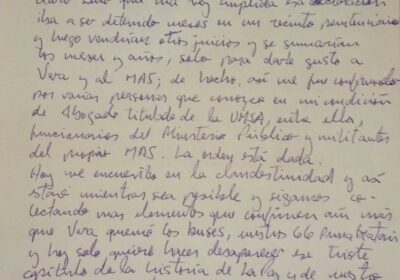 una vez cumplida esa declaración
iba a ser detenido meses en un recinto penitenciario
y luego vendrían otros juicios y se sumarían
los meses y años, solo para darle gusto a
Vera y al MAS; de hecho, así me fue confirmado
por varias personas que conozco en mi condición
de Abogado titulado de la UMSA, entre ellos,
funcionarios del Ministerio Público y militantes
del propio MAS. La orden está dada.
Hoy me encuentro en la clandestinidad y así
estaré mientras sea posible y sigamos co-
lectando mas elementos que confirmen aún más
que Vera quemó los buses, nuestros 66 PumaKatari
y hoy solo quiere hacer desaparecer ese triste
capítulo de la historia de La Paz y de